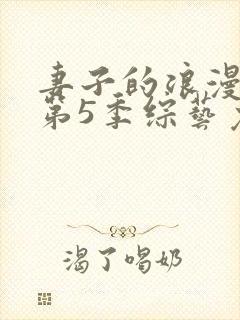 妻子的浪漫
第5季综藝
渴了喝奶